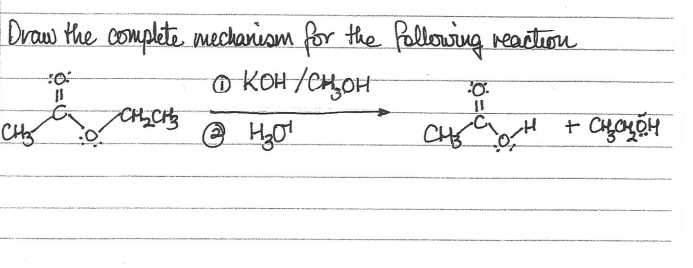 Draw the complete mechanism for the following reaction
:O: ① KOH/CH₃OH :O:
CH₃ C :O: CH₂CH₃ ② H₃O⁺ CH₃ C :O: H + CH₃CH₂ÖH